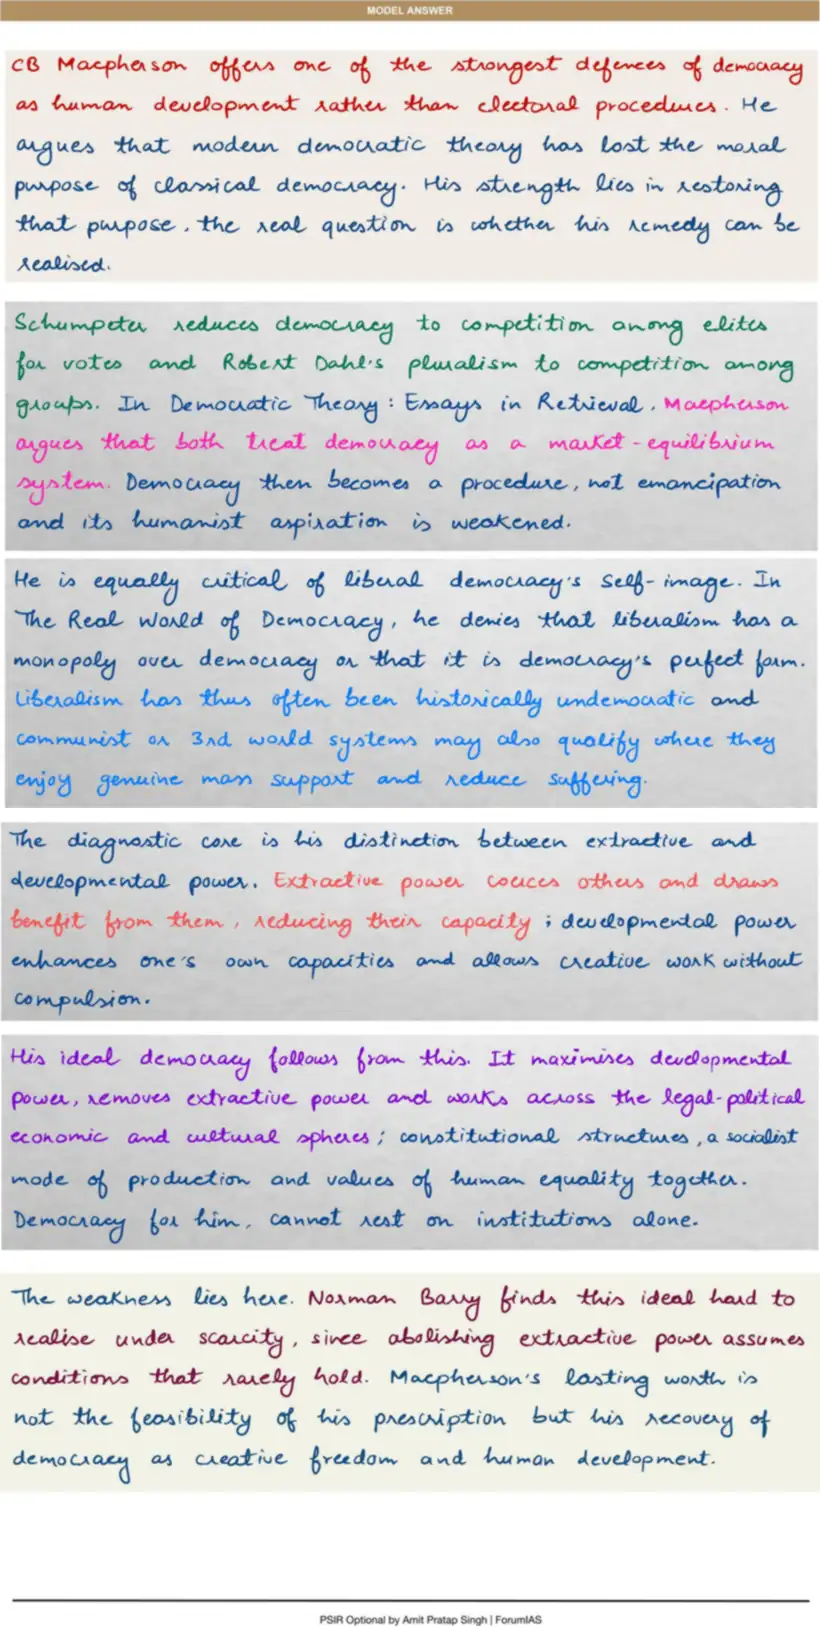 MODEL ANSWER
CB Macpherson offers one of the strongest defences of democracy
as human development rather than electoral procedures. He
argues that modern democratic theory has lost the moral
purpose of classical democracy. His strength lies in restoring
that purpose, the real question is whether his remedy can be
realised.
Schumpeter reduces democracy to competition among elites
for votes and Robert Dahl's pluralism to competition among
groups. In Democratic Theory: Essays in Retrieval, Macpherson
argues that both treat democracy as a market-equilibrium
system. Democracy then becomes a procedure, not emancipation
and its humanist aspiration is weakened.
He is equally critical of liberal democracy's self-image. In
The Real World of Democracy, he denies that liberalism has a
monopoly over democracy or that it is democracy's perfect form.
Liberalism has thus often been historically undemocratic and
communist or 3rd world systems may also qualify where they
enjoy genuine mass support and reduce suffering.
The diagnostic core is his distinction between extractive and
developmental power. Extractive power coerces others and draws
benefit from them, reducing their capacity; developmental power
enhances one's own capacities and allows creative work without
compulsion.
His ideal democracy follows from this. It maximises developmental
power, removes extractive power and works across the legal-political
economic and cultural spheres; constitutional structures, a socialist
mode of production and values of human equality together.
Democracy for him, cannot rest on institutions alone.
The weakness lies here. Norman Barry finds this ideal hard to
realise under scarcity, since abolishing extractive power assumes
conditions that rarely hold. Macpherson's lasting worth is
not the feasibility of his prescription but his recovery of
democracy as creative freedom and human development.
PSIR Optional by Amit Pratap Singh | ForumIAS